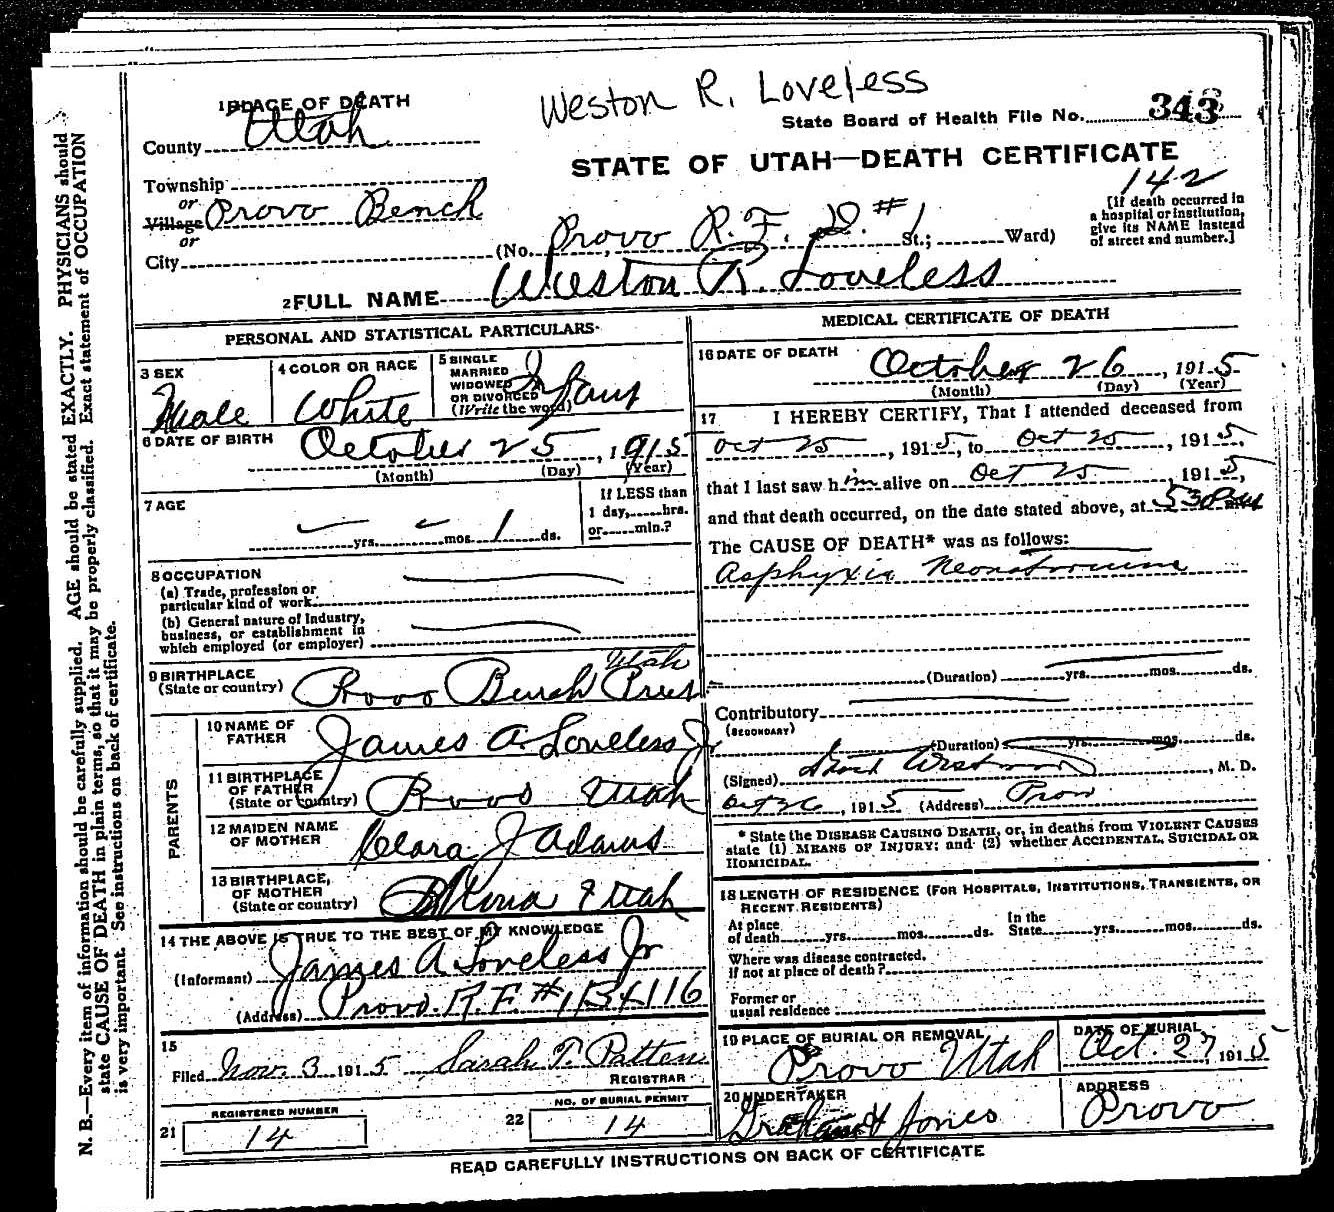 Weston R. Loveless
1 PLACE OF DEATH
County Utah
State Board of Health File No. 343
STATE OF UTAH—DEATH CERTIFICATE
142
Township
or
Village Provo Bench
or
City
(No. Provo R. F. D. #1 St.; Ward)
[If death occurred in
a hospital or institution,
give its NAME instead
of street and number.]
2 FULL NAME Weston R. Loveless
PERSONAL AND STATISTICAL PARTICULARS
3 SEX
Male
4 COLOR OR RACE
White
5 SINGLE
MARRIED
WIDOWED
OR DIVORCED
(Write the word)
6 DATE OF BIRTH
October 25, 1915
(Month) (Day) (Year)
7 AGE
yrs. mos. 1 ds.
If LESS than
1 day, hrs.
or min.?
8 OCCUPATION
(a) Trade, profession or
particular kind of work
(b) General nature of Industry,
business, or establishment in
which employed (or employer)
9 BIRTHPLACE
(State or country)
Provo Bench Utah
PARENTS
10 NAME OF
FATHER
James A. Loveless Jr
11 BIRTHPLACE
OF FATHER
(State or country)
Provo Utah
12 MAIDEN NAME
OF MOTHER
Clara J Adams
13 BIRTHPLACE,
OF MOTHER
(State or country)
Utah
14 THE ABOVE IS TRUE TO THE BEST OF MY KNOWLEDGE
(Informant) James A Loveless Jr
(Address) Provo. R.F. #1 B 116
15
Filed Nov. 3 1915 Sarah T. Patten
REGISTRAR
REGISTERED NUMBER
21 14
NO. OF BURIAL PERMIT
22 14
MEDICAL CERTIFICATE OF DEATH
16 DATE OF DEATH
October 26, 1915
(Month) (Day) (Year)
17 I HEREBY CERTIFY, That I attended deceased from
Oct 25, 1915, to Oct 25, 1915,
that I last saw him alive on Oct 25, 1915,
and that death occurred, on the date stated above, at 530 Pm
The CAUSE OF DEATH* was as follows:
Asphyxia Neonatorum
(Duration) yrs. mos. ds.
Contributory
(SECONDARY)
(Duration) yrs. mos. ds.
(Signed) Westwood, M. D.
Oct 26, 1915 (Address) Provo
* State the DISEASE CAUSING DEATH, or, in deaths from VIOLENT CAUSES
state (1) MEANS OF INJURY; and (2) whether ACCIDENTAL, SUICIDAL OR
HOMICIDAL.
18 LENGTH OF RESIDENCE (FOR HOSPITALS, INSTITUTIONS, TRANSIENTS, OR
RECENT RESIDENTS)
At place
of death yrs. mos. ds.
In the
State yrs. mos. ds.
Where was disease contracted,
if not at place of death?
Former or
usual residence
19 PLACE OF BURIAL OR REMOVAL
Provo Utah
DATE OF BURIAL
Oct. 27 1915
20 UNDERTAKER
Jones
ADDRESS
Provo
READ CAREFULLY INSTRUCTIONS ON BACK OF CERTIFICATE
N. B.—Every item of information should be carefully supplied. AGE should be stated EXACTLY. PHYSICIANS should
state CAUSE OF DEATH in plain terms, so that it may be properly classified. Exact statement of OCCUPATION
is very important. See instructions on back of certificate.